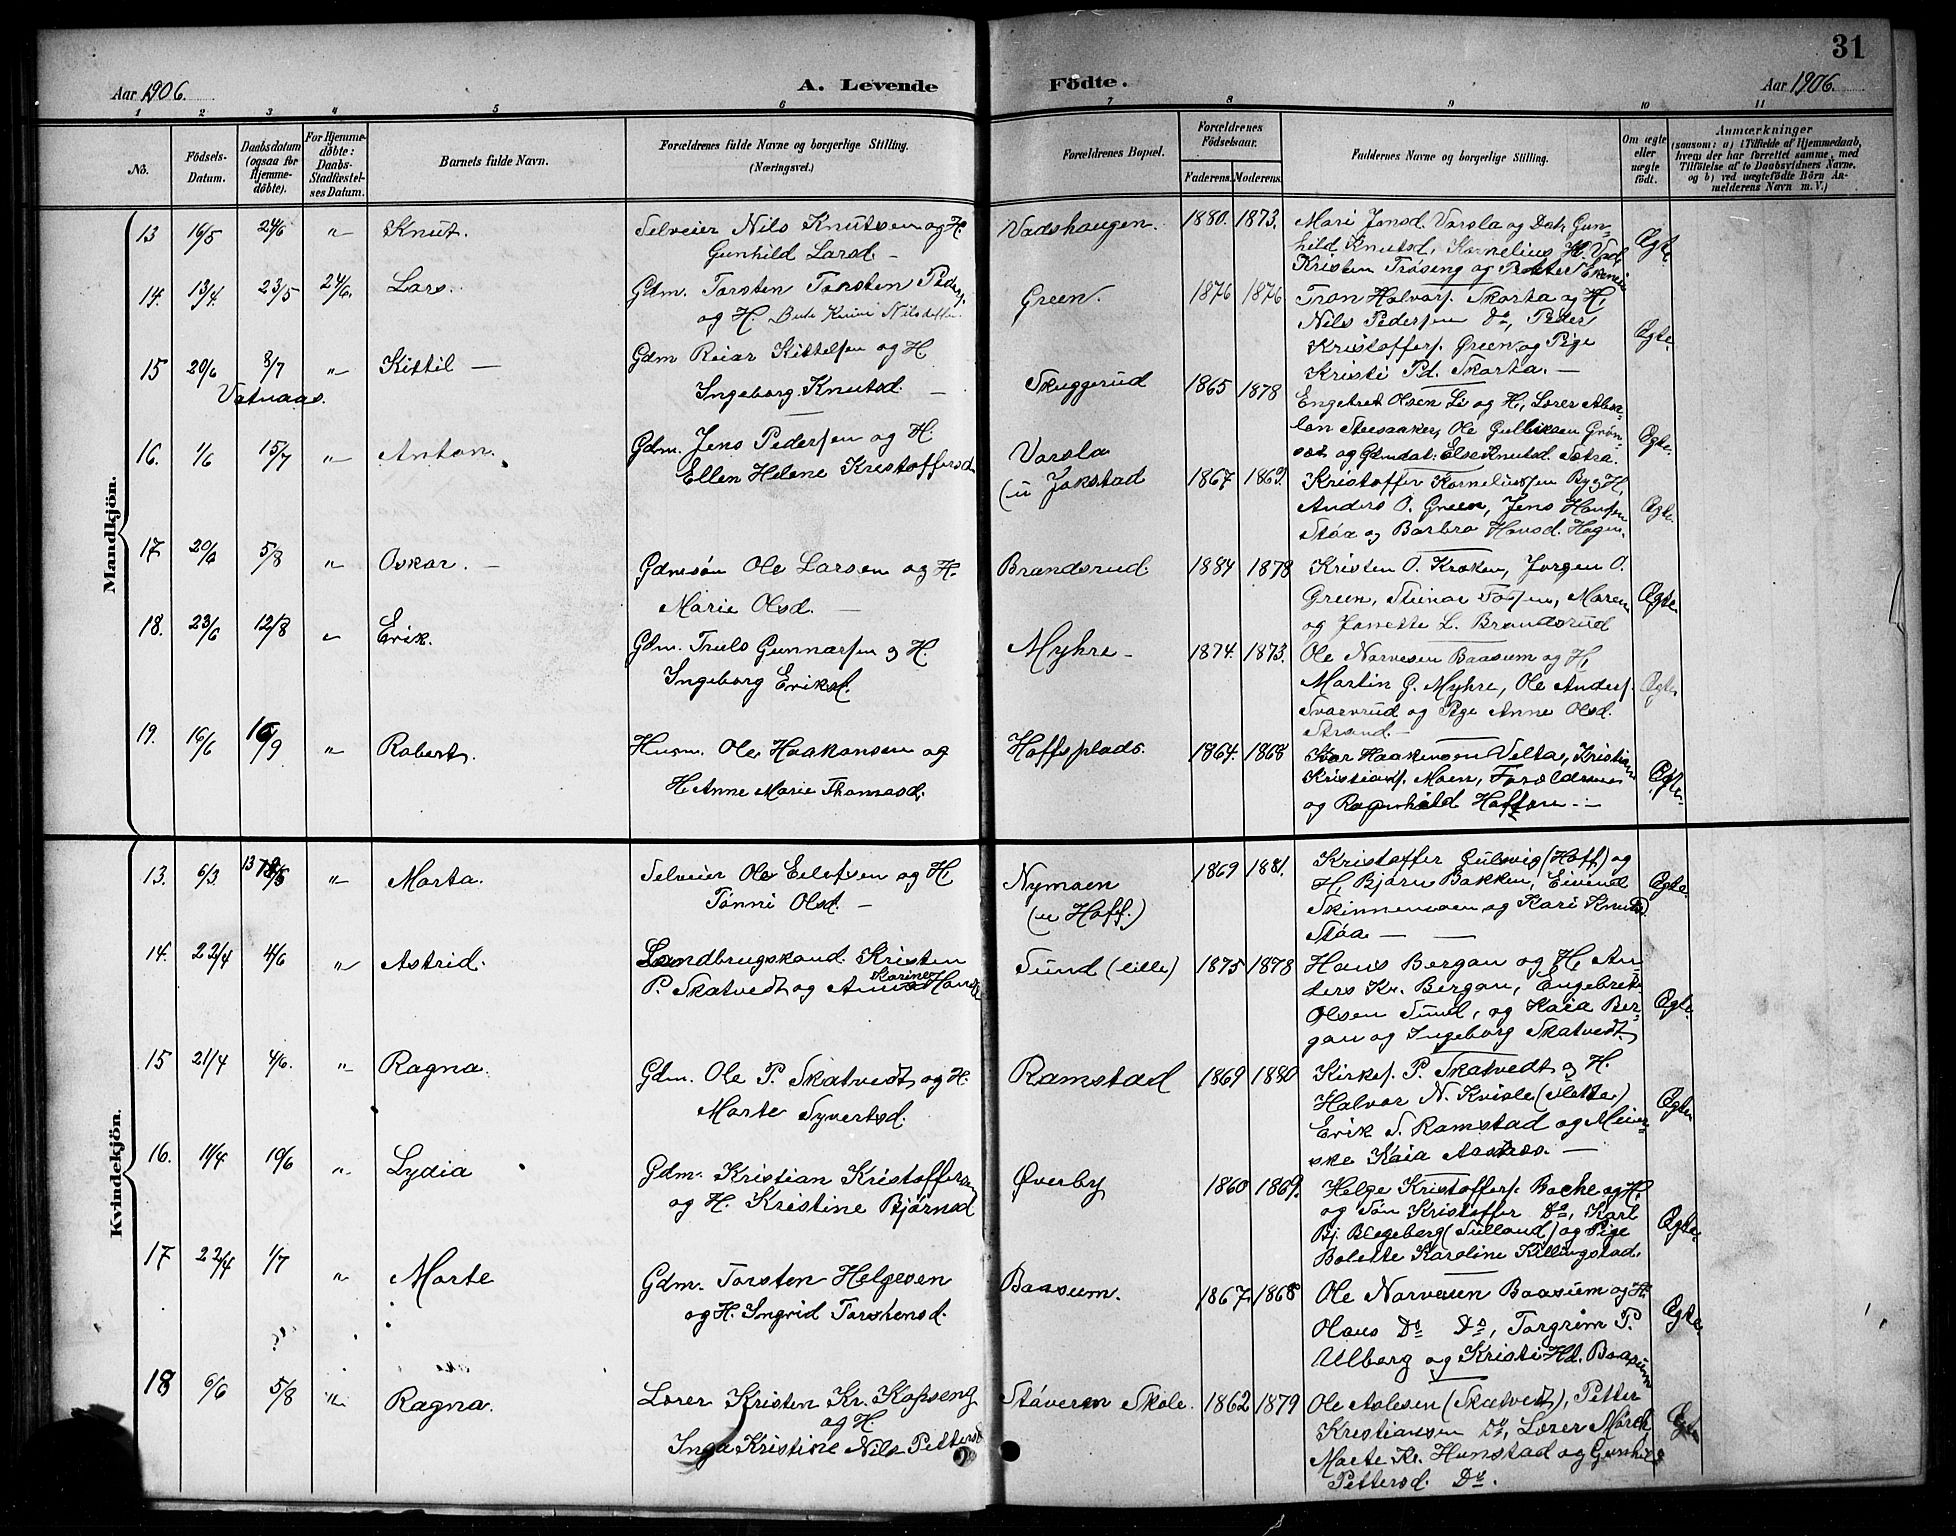 31
Aar 1906.
A. Levende Födte.
Aar 1906.
1 2 3 4 5 6 7 8 9 10 11
No.
Födsels-Datum.
Daabsdatum (ogsaa for Hjemme-döbte).
For Hjemme-döbte: Daabs-Stadfæstel-ses Datum.
Barnets fulde Navn.
Forældrenes fulde Navne og borgerlige Stilling. (Næringsvei.)
Forældrenes Bopæl.
Forældrenes Födselsaar.
Faderens. Moderens.
Faddernes Navne og borgerlige Stilling.
Om ægte eller uægte födt.
Anmærkninger
(saasom: a) i Tilfælde af Hjemmedaab, hvem der har forrettet samme, med Tilföielse af to Daabsvidners Navne. og b) ved uægtefödte Börn An-melderens Navn m. V.)
Mandkjön.
13 16/5 24/6 " Knut.
Selveier Nils Knutsen og H.
Gunhild Larsd. –
Vadshaugen. 1880. 1873.
Mari Jensd. Vorsla og Datr Gun-
hild Knutsd, Kornelius H.
Kristen Trøseng og Petter
Ægte.
14. 13/4 23/5 24/6. Lars.
Gdm. Torsten Torsten Peders.
og H. Nilsdatter
Green. 1876 1876
Tron Halvors. Skarta og H,
Nils Pedersen Do, Peder
Kristoffers. Green og Pige
Kristi Pd. Skarta. –
Ægte.
15 20/6 8/7 " Kittil –
Vatnaas.
Gdm Reiar Kittelsen og H
Ingeborg Knutsd. –
Skuggerud 1865 1878
Engebret Olsen Li og H, Lærer
Ole Gulliksen Grøn-
og Gdmdat. Else Knutsd. Sætra.
Ægte.
16. 1/6 15/7 " Anton.
Gdm. Jens Pedersen og H.
Ellen Helene Kristoffersd
Vorsla
(u Jokstad 1867 1869.
Kristoffer Korneliussen By og H,
Anders O. Green, Jens Hansen
Støa og Barbro Hansd. Hagen.
Ægte.
17. 20/6 5/8 " Oskar. –
Gdmsøn Ole Larsen og H.
Marie Olsd. –
Brandsrud 1884 1878
Kristen O. Kroken, Jørgen O.
Green, Maren
og Janette L. Brandsrud
Ægte.
18. 23/6 12/8 " Erik.
Gdm. Truls Gunnarsen og H.
Ingeborg Eriksd.
Myhre – 1874. 1873.
Ole Narvesen Baasum og H,
Martin G. Myhre, Ole Anders.
Svarvrud og Pige Anne Olsd.
Strand. –
Ægte.
19. 16/6 16/9 " Robert.
Husm. Ole Haakonsen og
H. Anne Marie Thomasd.
Hoffsplads. 1864. 1868
Haakensen Velta, Kristian
Kristians. Moen, Forældrene
og Ragnhild Hofføen. –
Ægte.
Kvindekjön.
13. 6/3 13/5 " Marta.
Selveier Ole Eilefsen og H,
Tønni Olsd. –
Nymoen
(u Hoff.) 1869 1881.
Kristoffer Gulsvig (Hoff) og
H, Bjørn Bakken, Eivind
Skinnemoen og Kari Knutsd.
Støa –
Ægte.
14. 22/4 4/6 " Astrid.
Landbrugskand. Kristen
P. Skatvedt og Anna Karine Hansd
Sund (lille) 1875 1878
Hans Bergan og H, An-
ders Kr. Bergan, Engebret
Olsen Sund, og Kaia Ber-
gan og Ingeborg Skatvedt.
Ægte.
15 21/4 4/6. " Ragna.
Gdm. Ole P. Skatvedt og H.
Marte Syvertsd.
Ramstad 1869 1880
Kirkes. P. Skatvedt og H.
Halvor N. Kvisle (Slette)
Erik S. Ramstad og Meier-
ske Kaia
Ægte.
16. 11/4 10/6 " Lydia
Gdm. Kristian Kristoffersen
og H. Kristine Bjørnsd
Øverby 1860 1869.
Helge Kristoffers. Bache og H,
og Søn Kristoffer Do, Karl
Bj. Blegeberg (Sulland) og Pige
Bolette Karoline Killingstad.
Ægte.
17 22/4 1/7 " Marte
Gdm. Torsten Helgesen
og H. Ingrid Torstensd.
Baasum. 1867. 1868
Ole Narvesen Baasum og H.
Olaus Do Do, Torgrim P.
Ulberg og Kristi Hd. Baasum
Ægte.
18 6/6 5/8 " Ragna.
Lærer Kristen Kr. Kopseng
og H.
Inga Kristine Nils Pettersd
Støveren Skole. 1862 1879
Ole Aslesen (Skatvedt), Petter
Kristiansen Do, Lærer Mörch
Marte Kr. Hunstad og Gunhild
Pettersd. Do.
Ægte